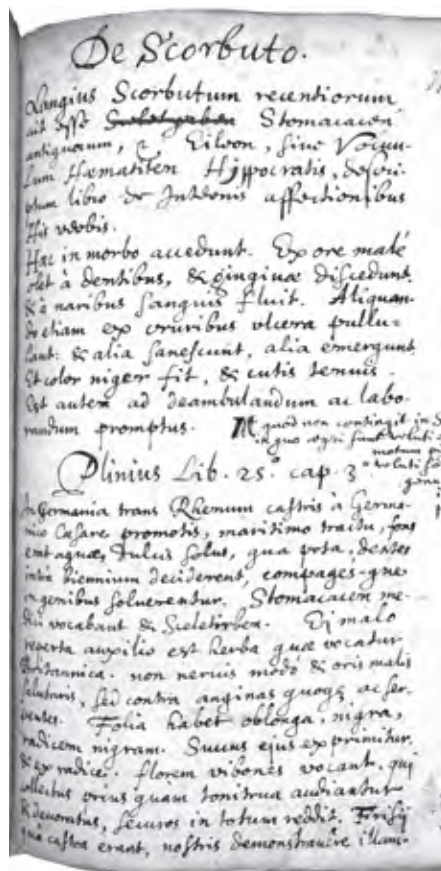 De Scorbuto.
Langius Scorbutum recentiorum
ait esse Stomacacen
antiquorum, & Eileon, sive Volvu-
lum Hæmatiten Hyppocratis, descri-
ptum libro de Internis affectionibus
His verbis.
Hæc in morbo accedunt. Ex ore malè
olet à dentibus, & gingivæ discedunt.
& è naribus sanguis fluit. Aliquan-
do etiam ex cruribus ulcera pullu-
lant: & alia sanescunt, alia emergunt.
Et color niger fit, & cutis tenuis.
Est autem ad deambulandum ac labo-
randum promptus. quod non contingit in
in quo ægri sunt
Plinius Lib. 25.º cap. 3º
In Germania trans Rhenum castris à Germa-
nico Cæsare promotis, maritimo tractu, fons
erat aquæ dulcis solus, qua pota, dentes
intra biennium deciderent, compages-que
in genibus solverentur. Stomacacen me-
dici vocabant & Sceletirben. Ei malo
reperta auxilio est herba quæ vocatur
Britannica. non nervis modò & oris malis
salutaris, sed contra anginas quoqȝ ac ser-
pentes. Folia habet oblonga, nigra,
radicem nigram. Succus ejus exprimitur,
& ex radice. florem vibones vocant. qui
collectus prius quam tonitrua audiantur
& devoratus, securos in totum reddit. Frisij
quà castra erant, nostris demonstravêre illam.